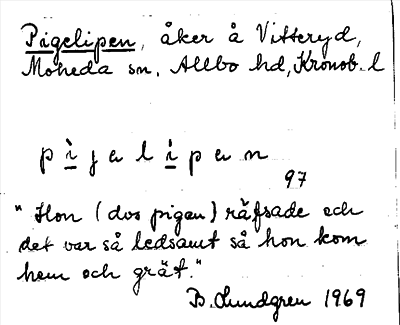 Pigelipen, åker å Vitteryd,
Moheda sn, Allbo hd, Kronob. l
p ì j e l í p e n
97
"Hon (dvs pigan) räfsade och
det var så ledsamt så hon kom
hem och grät."
B. Lundgren 1969